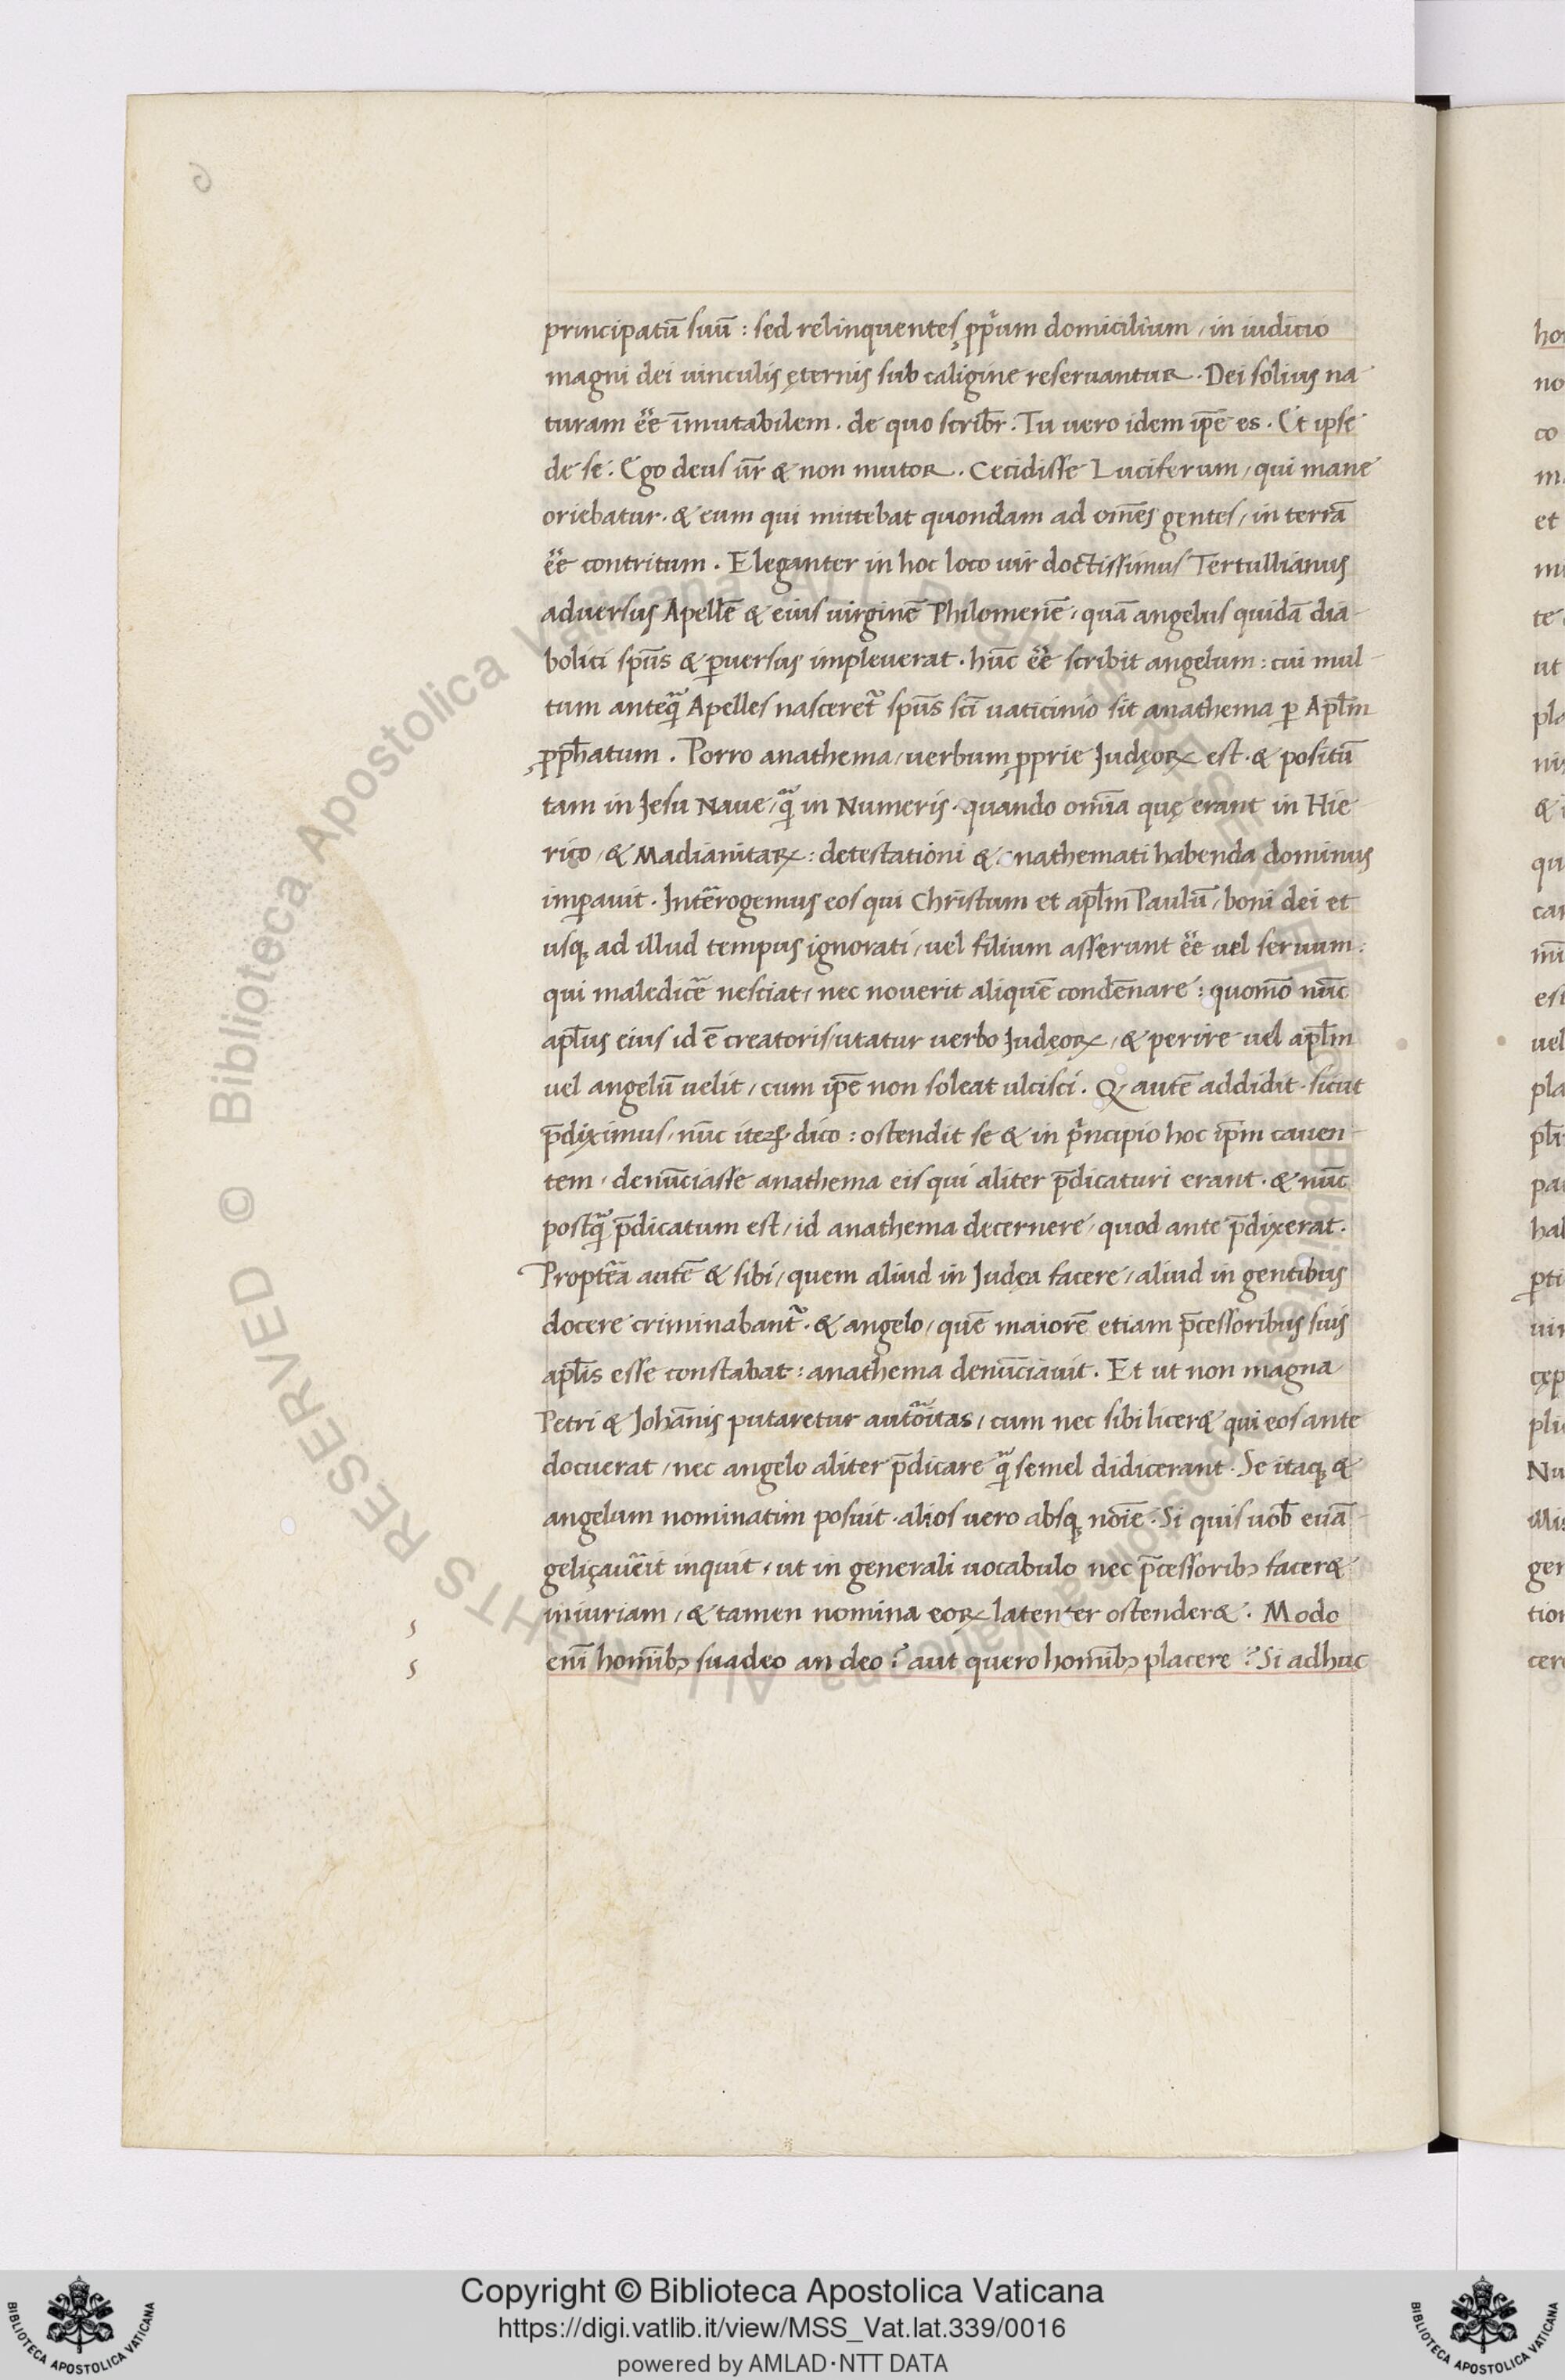 principatū suū : sed relinquentes ꝓpͥum domicilium / in iudicio
magni dei uinculis ęternis sub caligine reseruantur . Dei solius na
turam ēē īmutabilem . de quo scribr̄ . Tu uero idem ip̄e es . Et ipse
de se . Ego deus ur̄ & non mutor . Cecidisse Luciferum / qui mane
oriebatur . & eum qui mittebat quondam ad om̄es gentes / in terrā
ēē contritum . Eleganter in hoc loco uir doctissimus Tertullianus
aduersus Apellē & eius uirginē Philomenē / quā angelus quidā dia-
bolici sp̄us & ꝑuersus impleuerat . hūc ēē scribit angelum : cui mul-
tum anteꝗ̄ Apelles nasceret᷑ sp̄us sc̄i uaticinio sit anathema ꝑ Apl̄m
ꝓph̄atum . Porro anathema / uerbum ꝓprie Judęoꝝ est . & positū
tam in Jesu Naue / ꝗ̄ in Numeris . quando om̄ia quę erant in Hie
rico / & Madianitaꝝ : detestationi & anathemati habenda dominus
imꝑauit . Inter̄rogemus eos qui Christum et apl̄m Paulū / boni dei et
usq; ad illud tempus ignorati / uel filium asserunt ēē uel seruum :
qui maledicē nesciat / nec nouerit aliquē condēnare : quom̄o nūc
apl̄us eius id ē creatoris utatur uerbo Judęoꝝ / & perire uel apl̄m
uel angelū uelit / cum ip̄e non soleat ulcisci . Q autē addidit . sicut
p̄diximus / nūc iteꝝ dico : ostendit se & in pͥncipio hoc ip̄m cauen-
tem / denūciasse anathema eis qui aliter p̄dicaturi erant . & nūc
postꝗ̄ p̄dicatum est / id anathema decernere / quod ante p̄dixerat .
Proptēa autē & sibi / quem aliud in Judęa facere / aliud in gentibus
docere criminabant᷑ . & angelo / quē maiorē etiam p̄cessoribus suis
apl̄is esse constabat : anathema denūciauit . Et ut non magna
Petri & Johānis putaretur autōitas / cum nec sibi licer& qui eos ante
docuerat / nec angelo aliter p̄dicare ꝗ̄ semel didicerant . Se itaq; &
angelum nominatim posuit . alios uero absq; noīe . Si quis uob̄ euā-
geliçauēit inquit / ut in generali uocabulo nec p̄cessoribꝫ facer&
iniuriam / & tamen nomina eoꝝ latenter ostender& . Modo
enī homībꝫ suadeo an deo ? aut quero homībꝫ placere ? Si adhuc
Copyright © Biblioteca Apostolica Vaticana
https://digi.vatlib.it/view/MSS_Vat.lat.339/0016
powered by AMLAD·NTT DATA
BIBLIOTECA APOSTOLICA VATICANA
BIBLIOTECA APOSTOLICA VATICANA